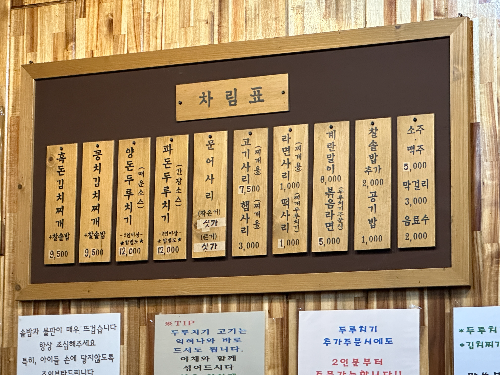 차림표
흑돈김치찌개
+찰솥밥
9,500
꽁치김치찌개
+찰솥밥
9,500
양돈두루치기
(매운소스)
12,000
파돈두루치기
(간장소스)
12,000
문어사리
(작은거)
싯가
(큰거)
싯가
고기사리
(찌개용)
7,500
햄사리
(찌개용)
3,000
라면사리
(찌개용)
1,000
떡사리
1,000
계란말이
8,000
볶음라면
5,000
찰솥밥
추가
2,000
공기밥
1,000
소주
맥주
5,000
막걸리
3,000
음료수
2,000
솥밥과 불판이 매우 뜨겁습니다
항상 조심해주세요.
특히, 아이들 손에 닿지않도록
TIP
두루치기 고기는
익혀나와 바로
드시도 됩니다.
야채와 함께
섞어드시다
두루치기
추가주문시에도
2인분부터
*두루치
*김치찌